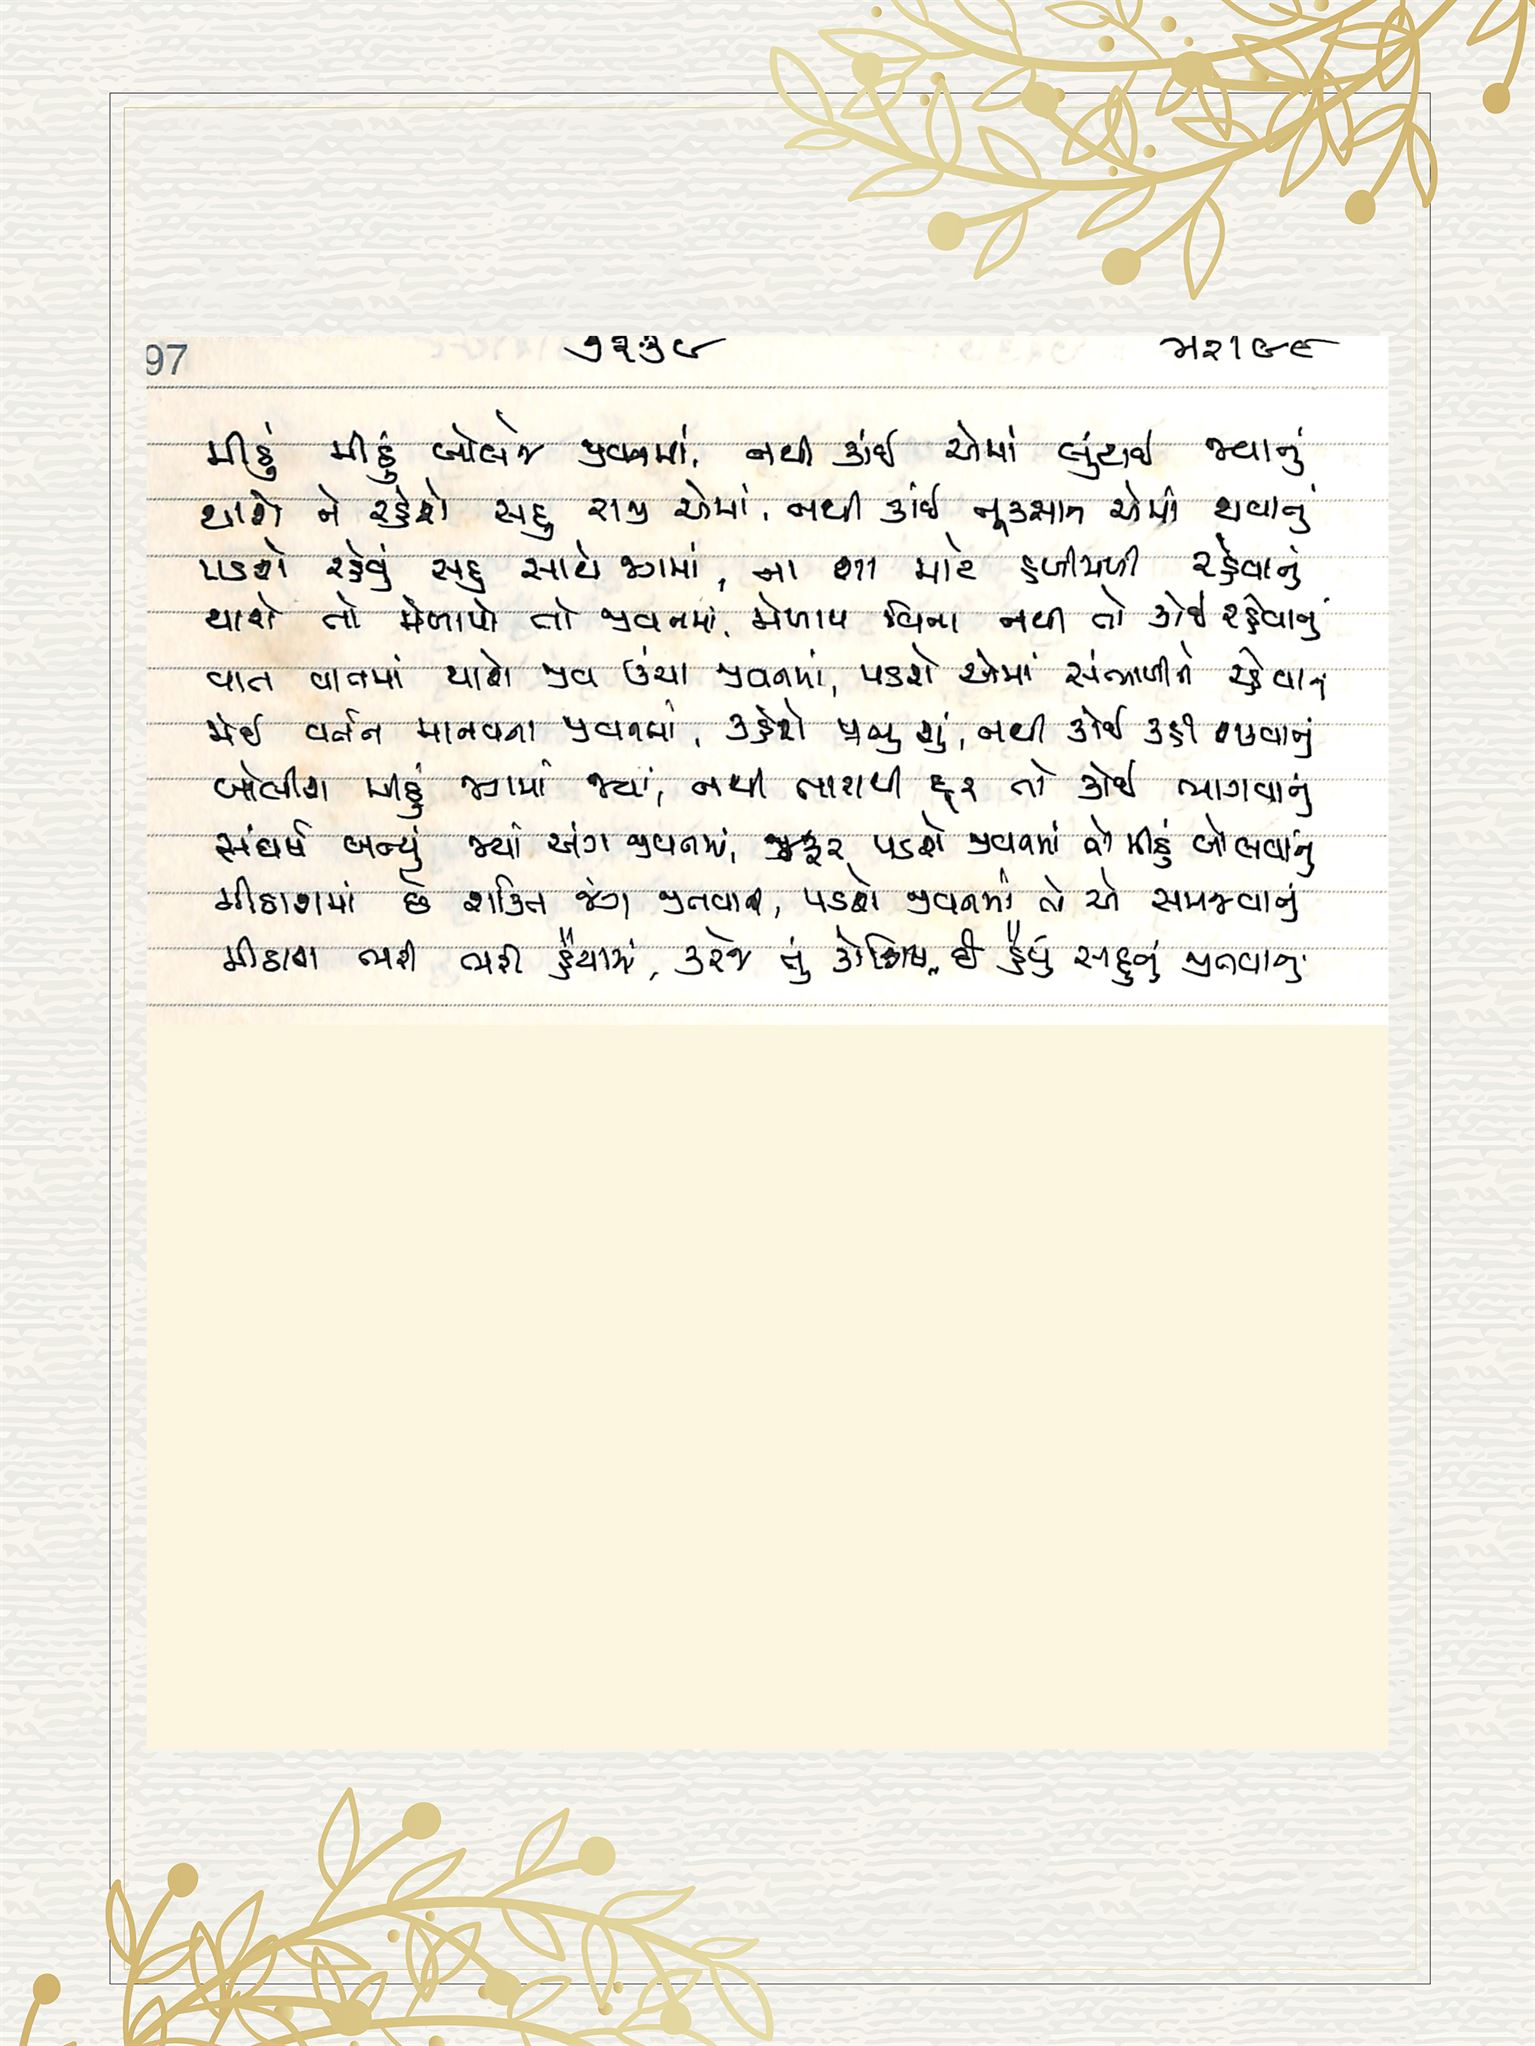 97 ૭૨૩૯ મ૨૧૯૯
મીઠું મીઠું બોલજે જીવનમાં, નથી કાંઈ એમાં લુંટાઈ જવાનું
થાશે ને રહેશે સહુ રાજી એમાં, નથી કાંઈ નૂકસાન એમાં થવાનું
પડશે રહેવું સહુ સાથે જગમાં, ના શા માટે હળીમળી રહેવાનું
થાશે તો મેળાપો તો જીવનમાં, મેળાપ વિના નથી તો કોઈ રહેવાનું
વાત વાતમાં થાશે જીવ ઉંચા જીવનમાં, પડશે એમાં સંભાળીને રહેવાનું
વર્તન માનવના જીવનમાં, કહેશે પ્રભુ શું, નથી કોઈ કહી શકવાનું
બોલીશ મીઠું જગમાં જ્યાં, નથી તારાથી દૂર તો કોઈ ભાગવાનું
સંઘર્ષ બન્યું જ્યાં અંગ જીવનમાં, જરૂર પડશે જીવનમાં તો મીઠું બોલવાનું
મીઠાશમાં છે શક્તિ જંગ જીતવાની, પડશે જીવનમાં તો એ સમજવાનું
મીઠાશ ભરી ભરી હૈયામાં, કરજે તું કોશિષ હૈયું સહુનું જીતવાનું